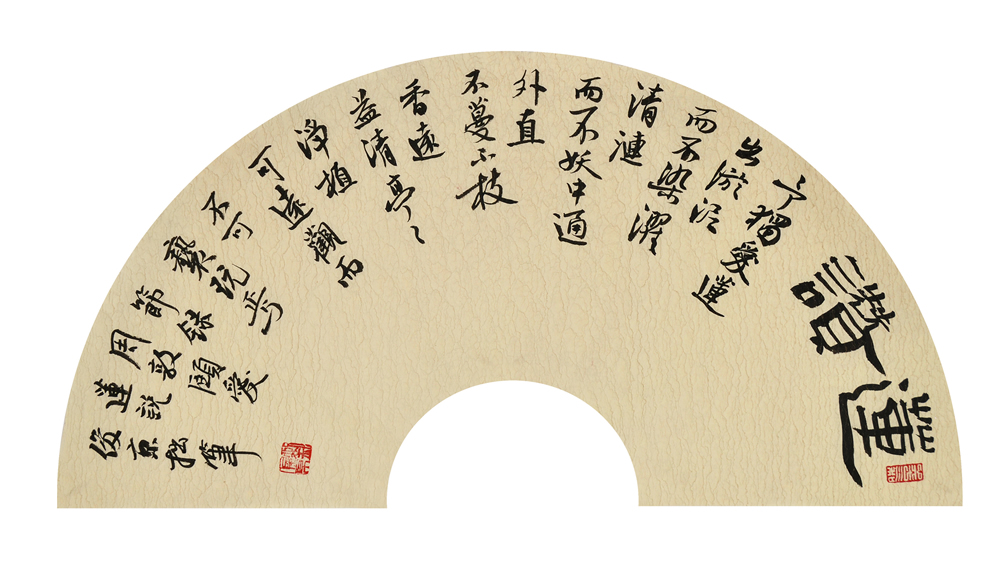 讚蓮
予獨愛蓮
出淤泥
而不染濯
清漣
而不妖中通
外直
不蔓不枝
香遠
益清亭々
淨植
可遠觀而
不可
褻玩焉
節錄
周敦頤愛
蓮說
俊京拙筆